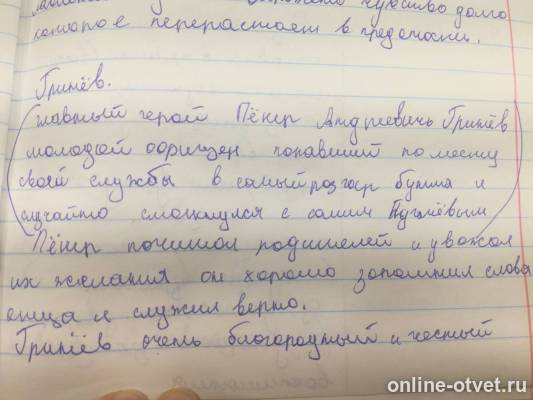 чувство долга
которое перерастает в преданность.
Гринёв.
главный герой Пётр Андреевичь Гринёв
молодой офицер попавший по месту
своей службы в самый розгар бунта и
случайно столкнулся с самим Пугачёвым
Пётр почитал родителей и уважал
их желания он хорошо запомнил слова
отца и служил верно.
Гринёв очень благородный и честный
online-otvet.ru